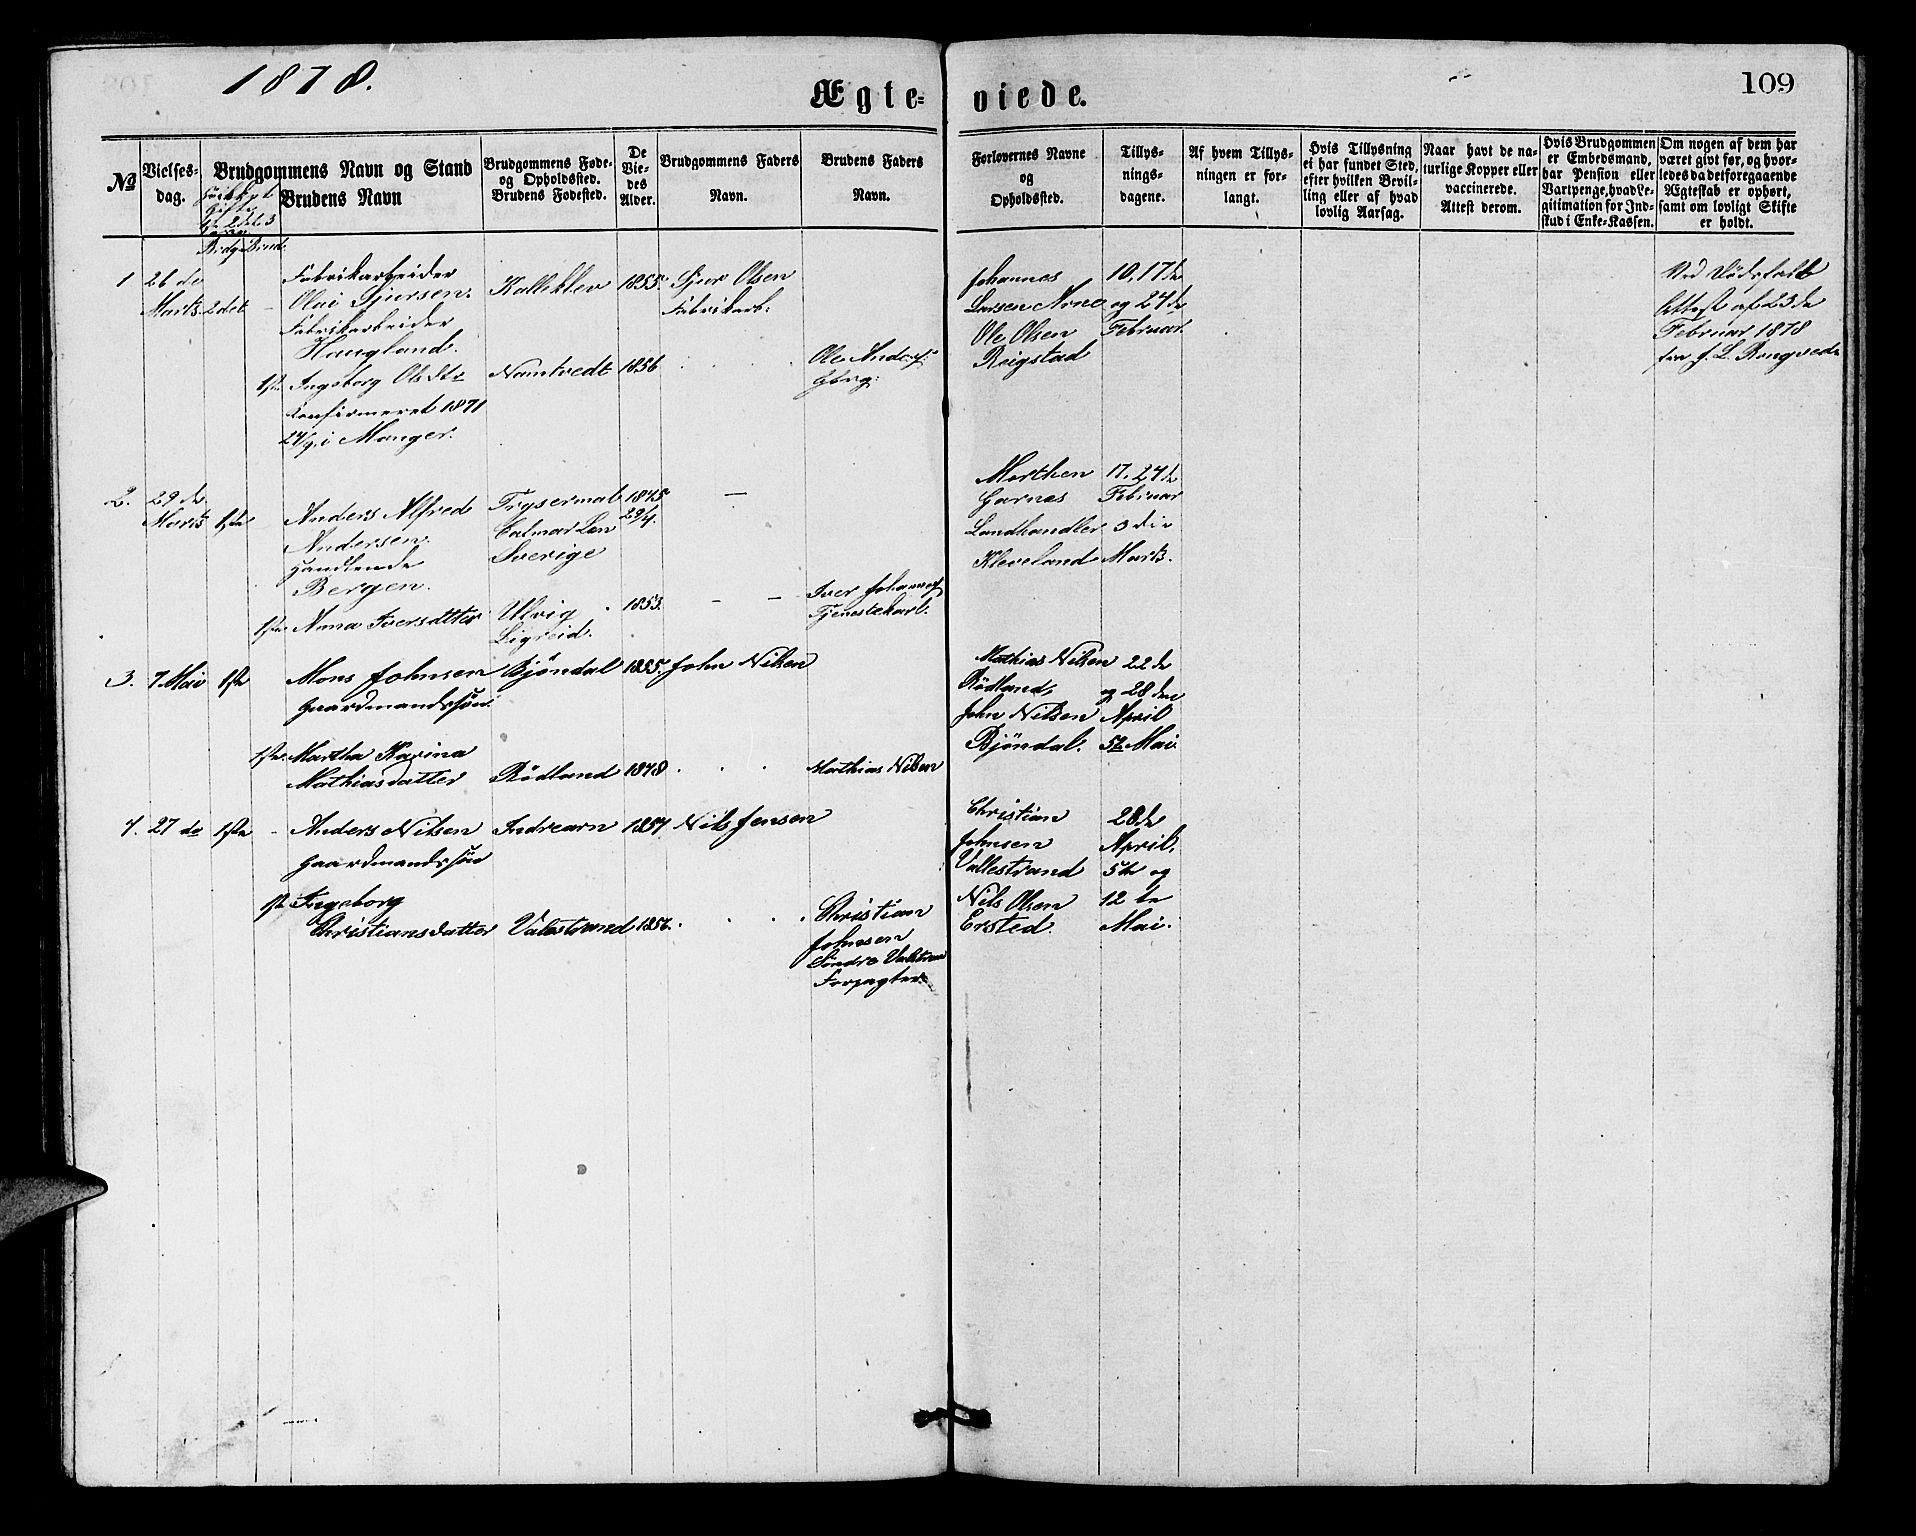 1878.
Ægte-
viede.
109
No
Vielses-
dag.
Brudgommens Navn og Stand
Brudens Navn
Brudgommens Føde-
og Opholdssted.
Brudens Fødested.
De
Vie-
des
Alder.
Brudgommens Faders
Navn.
Brudens Faders
Navn.
Forlovernes Navne
og
Opholdssted.
Tillys-
nings-
dagene.
Af hvem Tillys-
ningen er for-
langt.
Hvis Tillysning
ei har fundet Sted,
efter hvilken Bevil-
ling eller af hvad
lovlig Aarsag.
Naar havt de na-
turlige Kopper eller
vaccinerede.
Attest derom.
Hvis Brudgommen
er Embedsmand,
har Pension eller
Vartpenge, hvad Le-
gitimation for Ind-
skud i Enke-Kassen.
Om nogen af dem har
været givt før, og hvor-
ledes da det foregaaende
Ægteskab er ophørt,
samt om lovligt Skifte
er holdt.
1
26 de
Marts
2det
-
Fabrikarbeider
Olai Sjursen.
Fabrikarbeider
Haugland.
Kalleklev
1855
Sjur Olsen
Fabrikarb:
Johannes
Larsen Arne
Ole Olsen
Reigstad
10, 17de
og 24de
Februar.
Ved Dødsfald
Attest af 23de
Februar 1878
fra
1ste
Ingeborg Olsdtr
Confirmeret 1871
24/9 i Manger.
Namtvedt
1856
Ole Anders:
2.
29 de
Marts
1ste
Anders Alfred
Andersen.
Handlende
Bergen.
Trysermal
Calmar Len
Sverige
1845
29/4.
—
Morthen
Garnes
Landhandler
Kleveland
17. 24de
Februar
3die
Marts.
1ste
Anna Iversdtter
Ulvig
Ligreid.
1853.
- -
Iver Johannes
Tjenestekarl.
3.
7 Mai
1ste
Mons Johnsen
Gaardmandssøn
Bjøndal
1855.
John Nilsen
Mathias Nilsen
Rødland,
John Nilsen
Bjøndal.
22de
og 28 den
April
5te Mai
1ste
Martha Karina
Mathiasdatter
Rødland
1848
Mathias Nilsen
4.
27 de
1ste
-
Anders Nilsen
Gaardmandssøn
Indrearn
1857
Nils Jensen
Christian
Johnsen
Vallestrand
Nils Olsen
Ersted.
28de
April,
5te og
12te
Mai.
1ste
Ingeborg
Christiansdatter
Valestrand
1856.
Christian
Johnsen
Søndre
Forpagter.